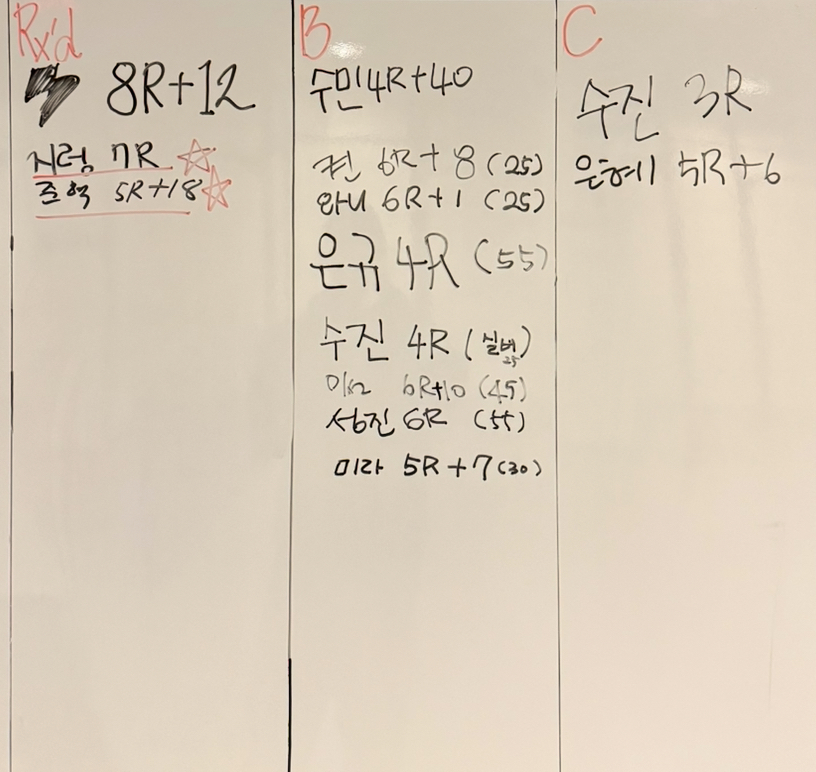 Rx'd
8R+12
지령 7R
준혁 5R+18
B
수민 4R+40
켄 6R+8 (25)
와니 6R+1 (25)
은규 4R (55)
수진 4R (실버 25)
6R+10 (45)
성진 6R (55)
미라 5R+7 (30)
C
수진 3R
은혜 5R+6